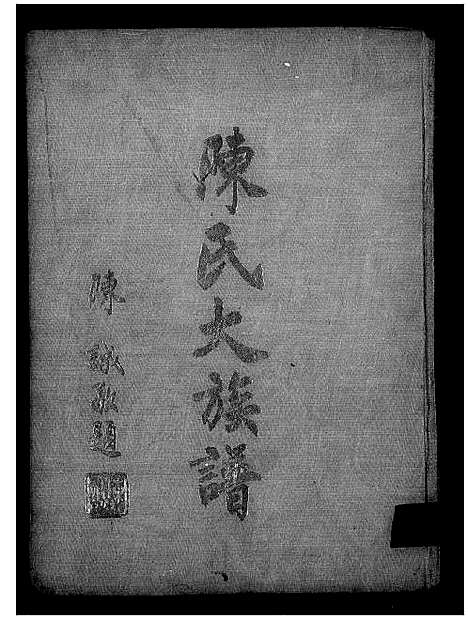 陳氏大族譜
陳
題